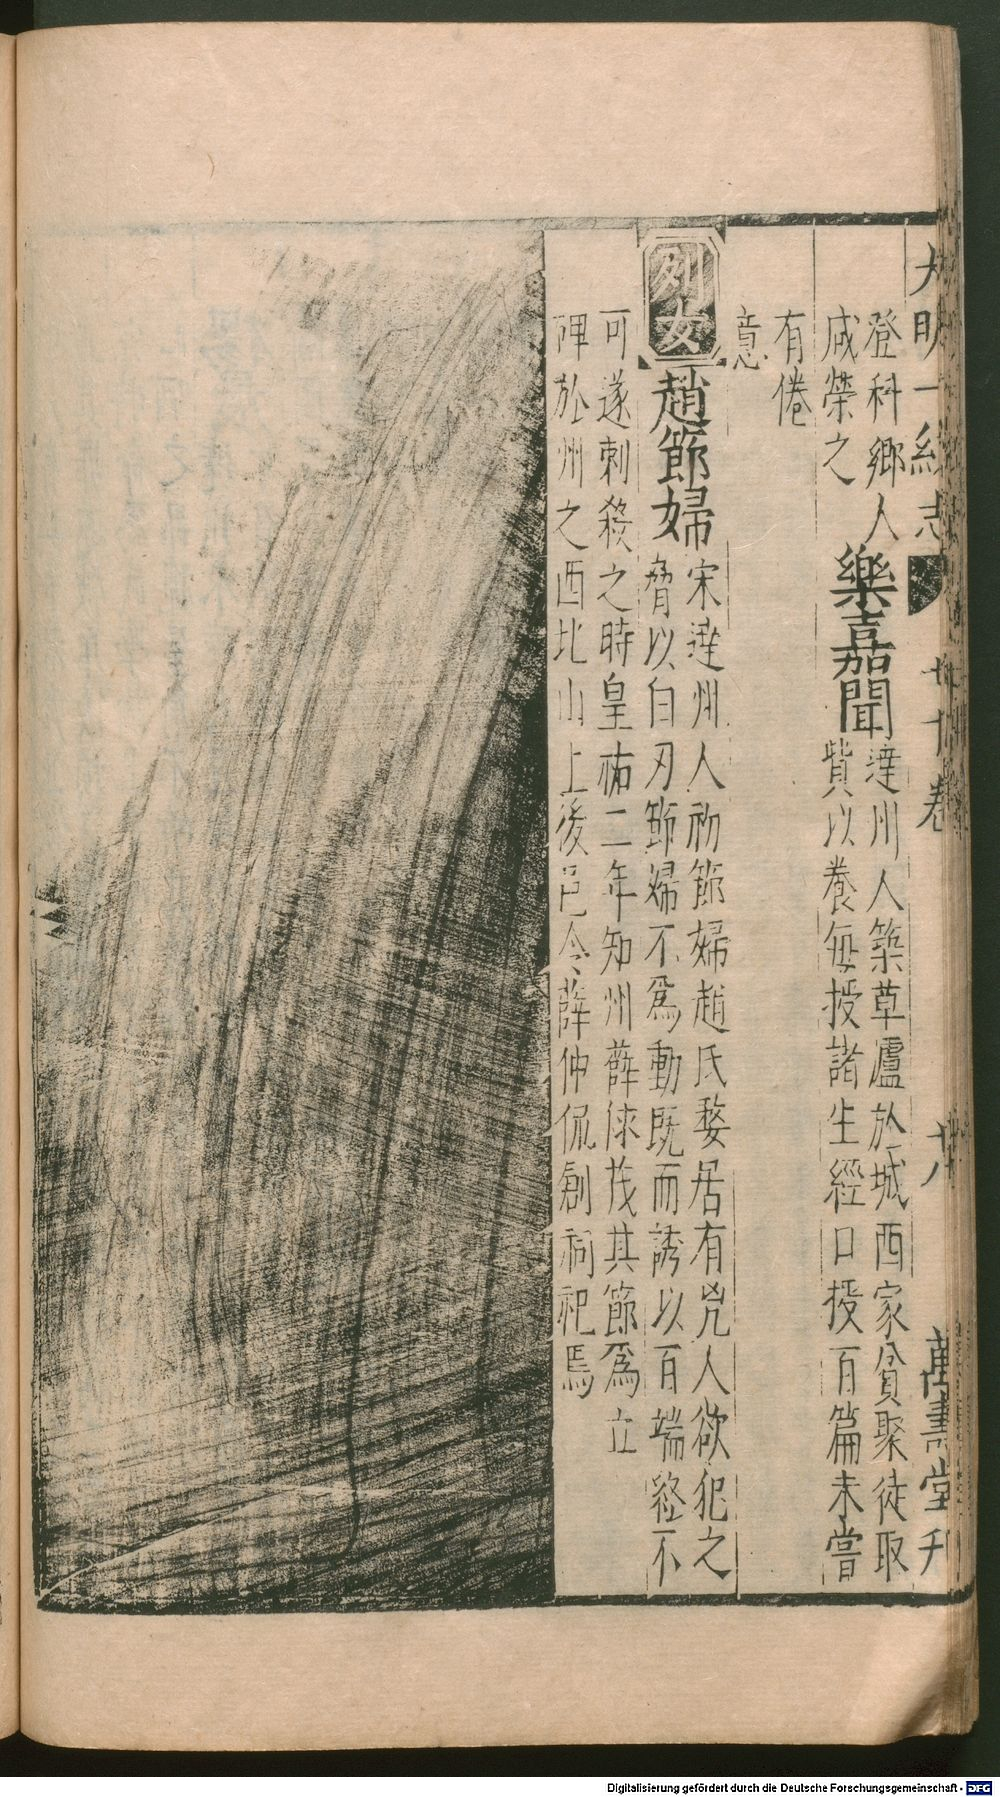 大明一統志 七十卷 萬壽堂刊
登科鄉人
咸榮之
樂嘉聞
達州人築草廬於城西家貧聚徒取
貲以養每授諸生經口授百篇未嘗
有倦
意
列女
趙節婦
宋達州人初節婦趙氏婺居有兇人欲犯之
脅以白刃節婦不爲動既而誘以百端終不
可遂刺殺之時皇祐二年知州薛俅茂其節爲立
碑於州之西北山上後邑令薛仲侃創祠祀焉
Digitalisierung gefördert durch die Deutsche Forschungsgemeinschaft - DFG